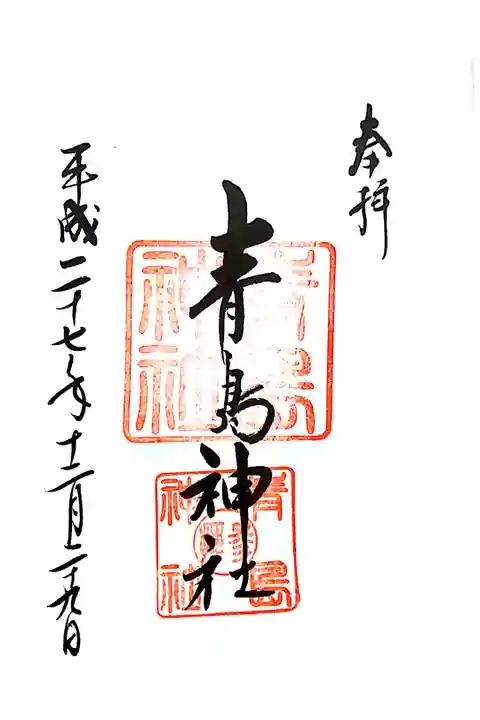 奉拝
青島神社
平成二十七年十二月二十九日
青島神社
青島神社